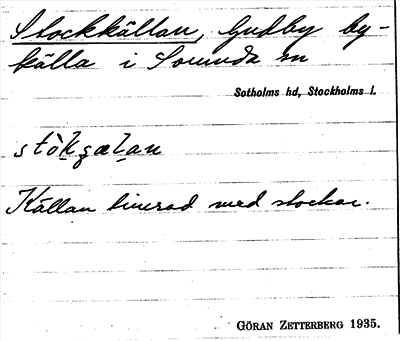 Stockkällan, Gudby by-
källa i Sorunda sn
Sotholms hd, Stockholms l.
stòkgælan
Källan timrad med stockar.
GÖRAN ZETTERBERG 1935.